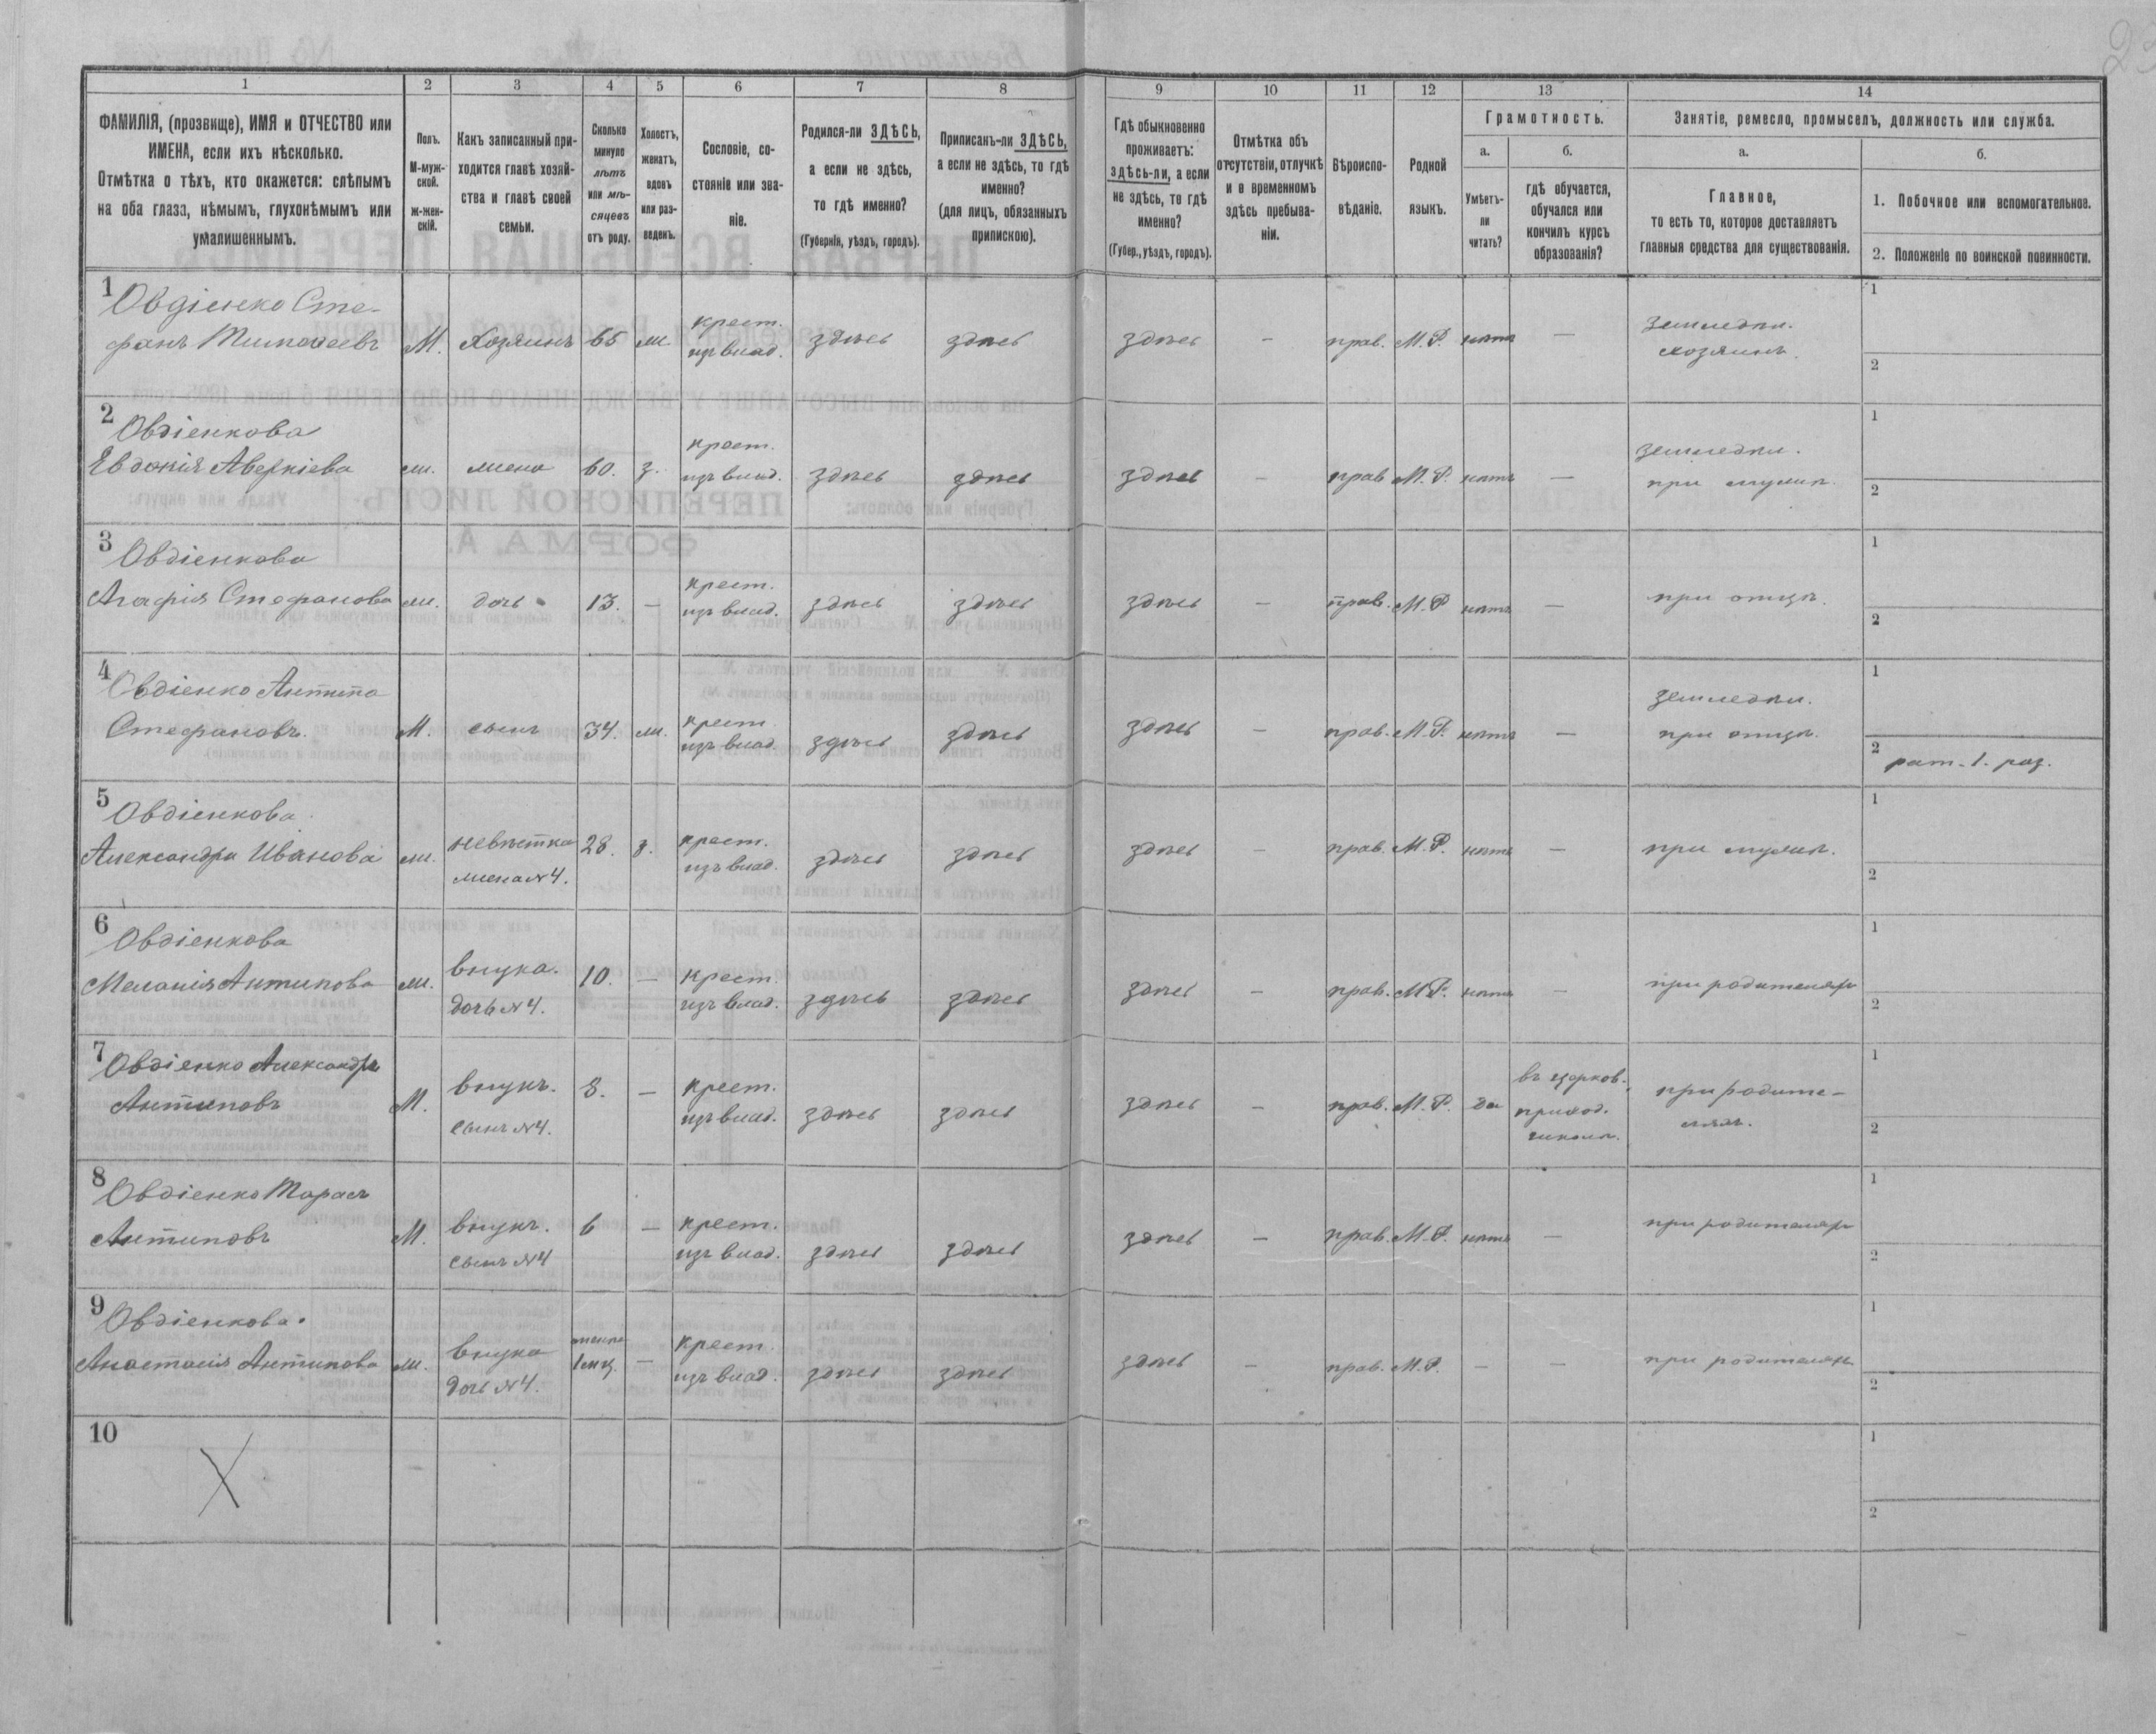 1 2 3 4 5 6 7 8 9 10 11 12 13 14
ФАМИЛІЯ, (прозвище), ИМЯ и ОТЧЕСТВО или
ИМЕНА, если ихъ нѣсколько.
Отмѣтка о тѣхъ, кто окажется: слѣпымъ
на оба глаза, нѣмымъ, глухонѣмымъ или
умалишеннымъ.
Полъ.
М-муж-
ской.
ж-жен-
скій.
Какъ записанный при-
ходится главѣ хозяй-
ства и главѣ своей
семьи.
Сколько
минуло
лѣтъ
или мѣ-
сяцевъ
отъ роду.
Холостъ,
женатъ,
вдовъ
или раз-
веденъ.
Сословіе, со-
стояніе или зва-
ніе.
Родился-ли ЗДѢСЬ,
а если не здѣсь,
то гдѣ именно?
(Губернія, уѣздъ, городъ).
Приписанъ-ли ЗДѢСЬ,
а если не здѣсь, то гдѣ
именно?
(для лицъ, обязанныхъ
припискою).
Гдѣ обыкновенно
проживаетъ:
здѣсь-ли, а если
не здѣсь, то гдѣ
именно?
(Губер., уѣздъ, городъ).
Отмѣтка объ
отсутствіи, отлучкѣ
и о временномъ
здѣсь пребыва-
ніи.
Вѣроиспо-
вѣданіе.
Родной
языкъ.
Грамотность.
а.
Умѣетъ-
ли
читать?
б.
гдѣ обучается,
обучался или
кончилъ курсъ
образованія?
Занятіе, ремесло, промыселъ, должность или служба.
а.
Главное,
то есть то, которое доставляетъ
главныя средства для существованія.
б.
1. Побочное или вспомогательное.
2. Положеніе по воинской повинности.
1 Овдіенко Сте-
фанъ Тимофеевъ М. Хозяинъ 65 ж. крест. изъ влад. здѣсь здѣсь здѣсь - прав. М.Р. нѣтъ — земледѣл. хозяинъ. 1 2
2 Овдіенкова
Евдокія Аверкіева ж. жена 60. з. крест. изъ влад. здѣсь здѣсь здѣсь - прав М.Р. нѣтъ — земледѣл. при мужѣ. 1 2
3 Овдіенкова
Агафія Стефанова ж. дочь 13. — крест. изъ влад. здѣсь здѣсь здѣсь - прав. М.Р нѣтъ — при отцѣ. 1 2
4 Овдіенко Антипа
Стефановъ. М. сынъ 34. ж. крест. изъ влад. здѣсь здѣсь здѣсь - прав. М.Р. нѣтъ — земледѣл. при отцѣ. 1 2 рат. 1. раз.
5 Овдіенкова
Александра Иванова ж. невѣстка жена N4. 28. з. крест. изъ влад. здѣсь здѣсь здѣсь - прав. М.Р. нѣтъ — при мужѣ. 1 2
6 Овдіенкова
Меланія Антипова ж. внука. дочь N4. 10. — крест. изъ влад. здѣсь здѣсь здѣсь - прав. М.Р. нѣтъ — при родителяхъ 1 2
7 Овдіенко Александръ
Антиповъ М. внукъ. сынъ N4. 8. — крест. изъ влад. здѣсь здѣсь здѣсь - прав. М.Р. да въ церков. приход. школѣ. при родите-
ляхъ. 1 2
8 Овдіенко Тарасъ
Антиповъ М. внукъ. сынъ N4 6 — крест. изъ влад. здѣсь здѣсь здѣсь — прав. М.Р. нѣтъ — при родителяхъ 1 2
9 Овдіенкова
Анастасія Антипова ж. внука дочь N4. менѣе 1 мц. — крест. изъ влад. здѣсь здѣсь здѣсь - прав. М.Р. — — при родителяхъ 1 2
10 X 1 2